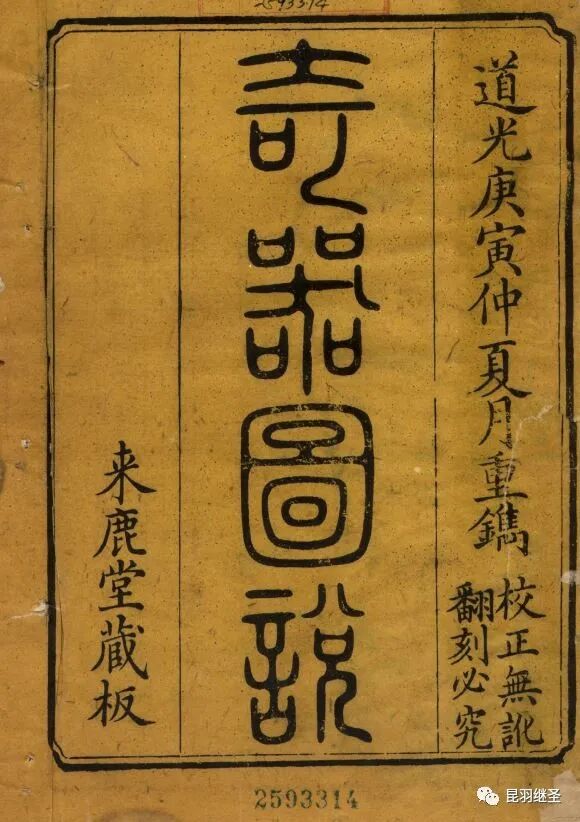 2593314
道光庚寅仲夏月重鐫
校正無訛
翻刻必究
奇器圖說
来鹿堂蔵板
2593314
昆羽继圣